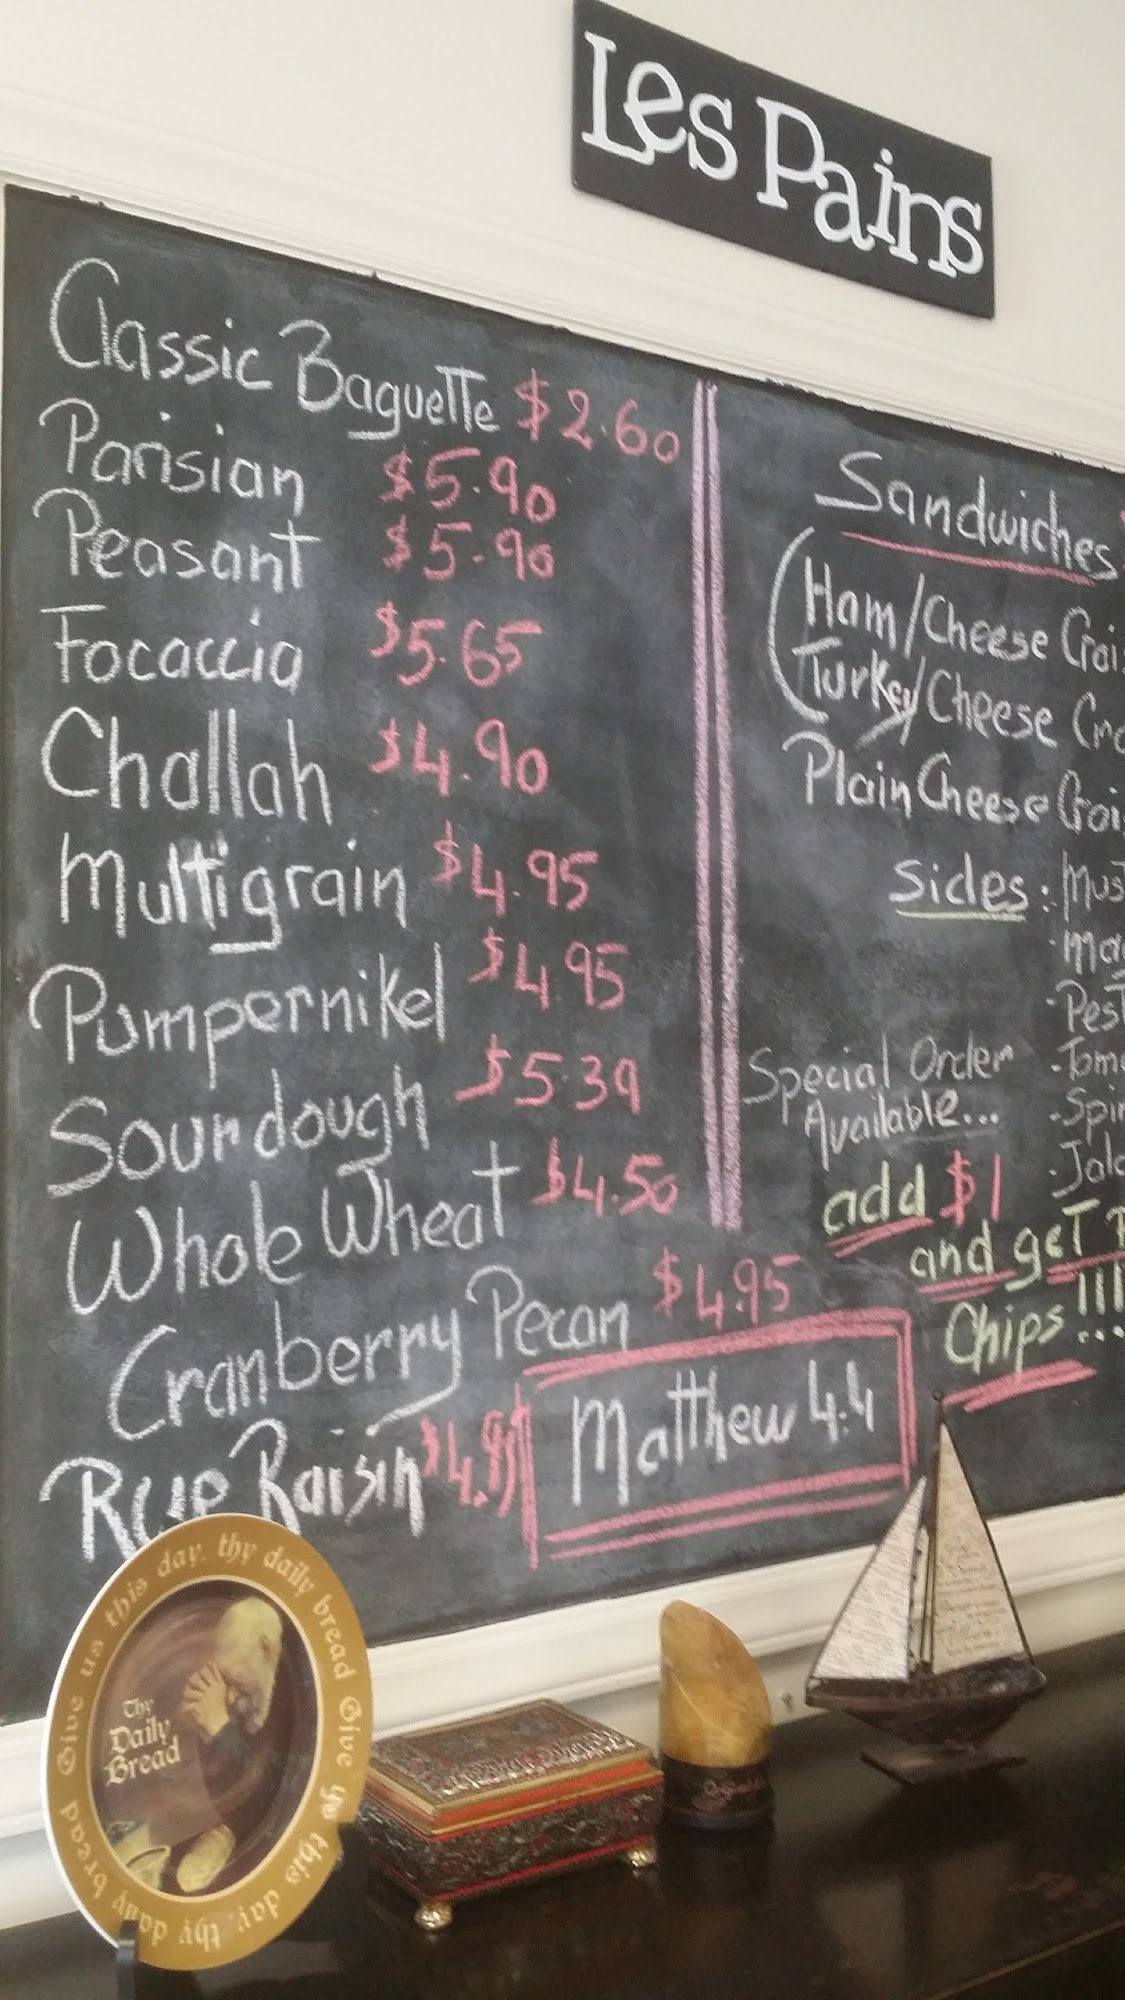 Les Pains
Classic Baguette $2.60
Parisian $5.90
Peasant $5.90
Focaccia $5.65
Challah $4.90
Multigrain $4.95
Pumpernikel $4.95
Sourdough $5.39
Whole Wheat $4.50
Cranberry Pecan $4.95
Rye Raisin $4.95
Matthew 4:4
Sandwiches
Ham/Cheese Croi
Turkey/Cheese Cro
Plain Cheese Croi
Sides: Mus
Pest
Special Order
Available...
-Tom
-Spin
-Jala
add $1
and get
Chips!!!...
Give us this day, thy daily bread Give us this day, thy daily bread
Thy
Daily
Bread